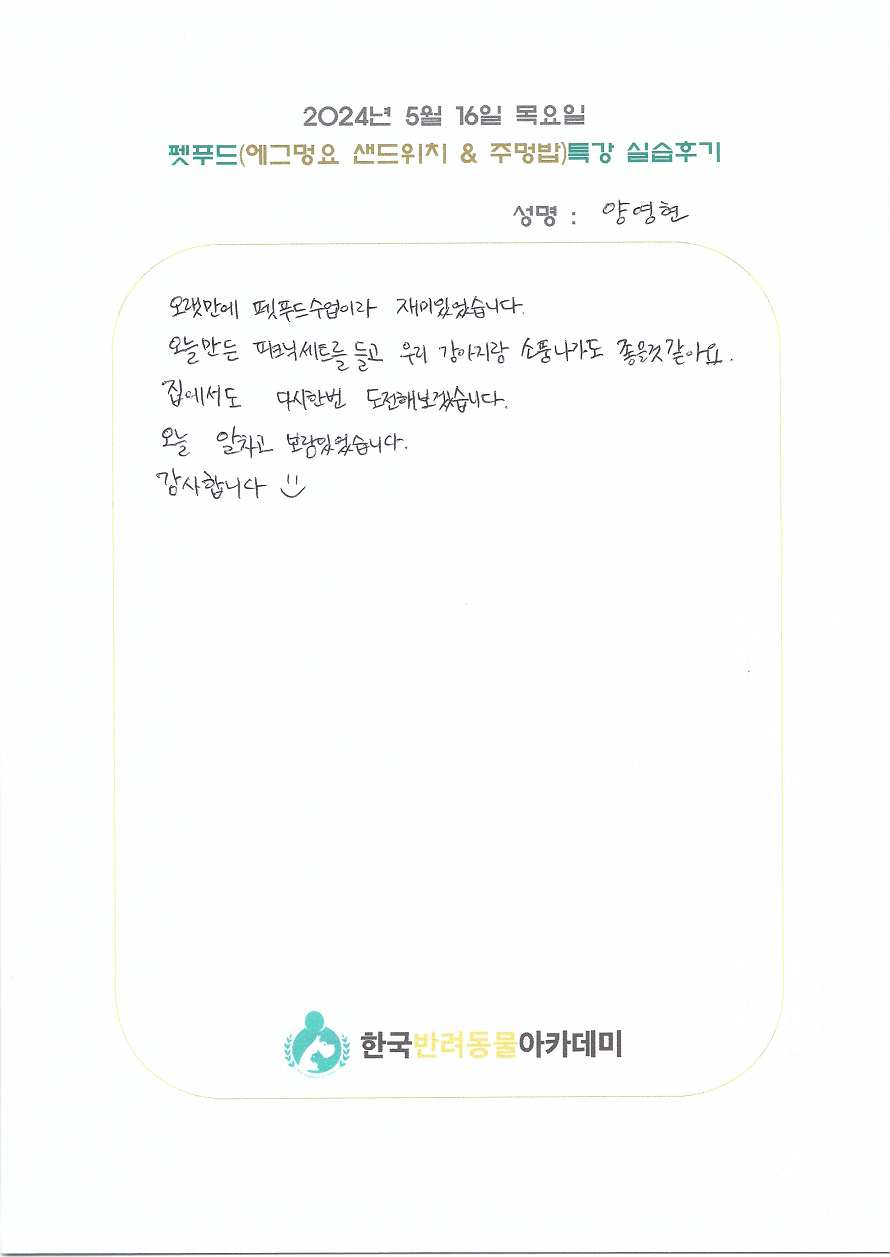 2024년 5월 16일 목요일
펫푸드(에그멍요 샌드위치 & 주멍밥)특강 실습후기
성명 : 양영현
오랫만에 펫푸드수업이라 재미있었습니다.
오늘만든 피크닉세트를 들고 우리 강아지랑 소풍나가도 좋을것같아요.
집에서도 다시한번 도전해보겠습니다.
오늘 알차고 보람있었습니다.
감사합니다
한국반려동물아카데미